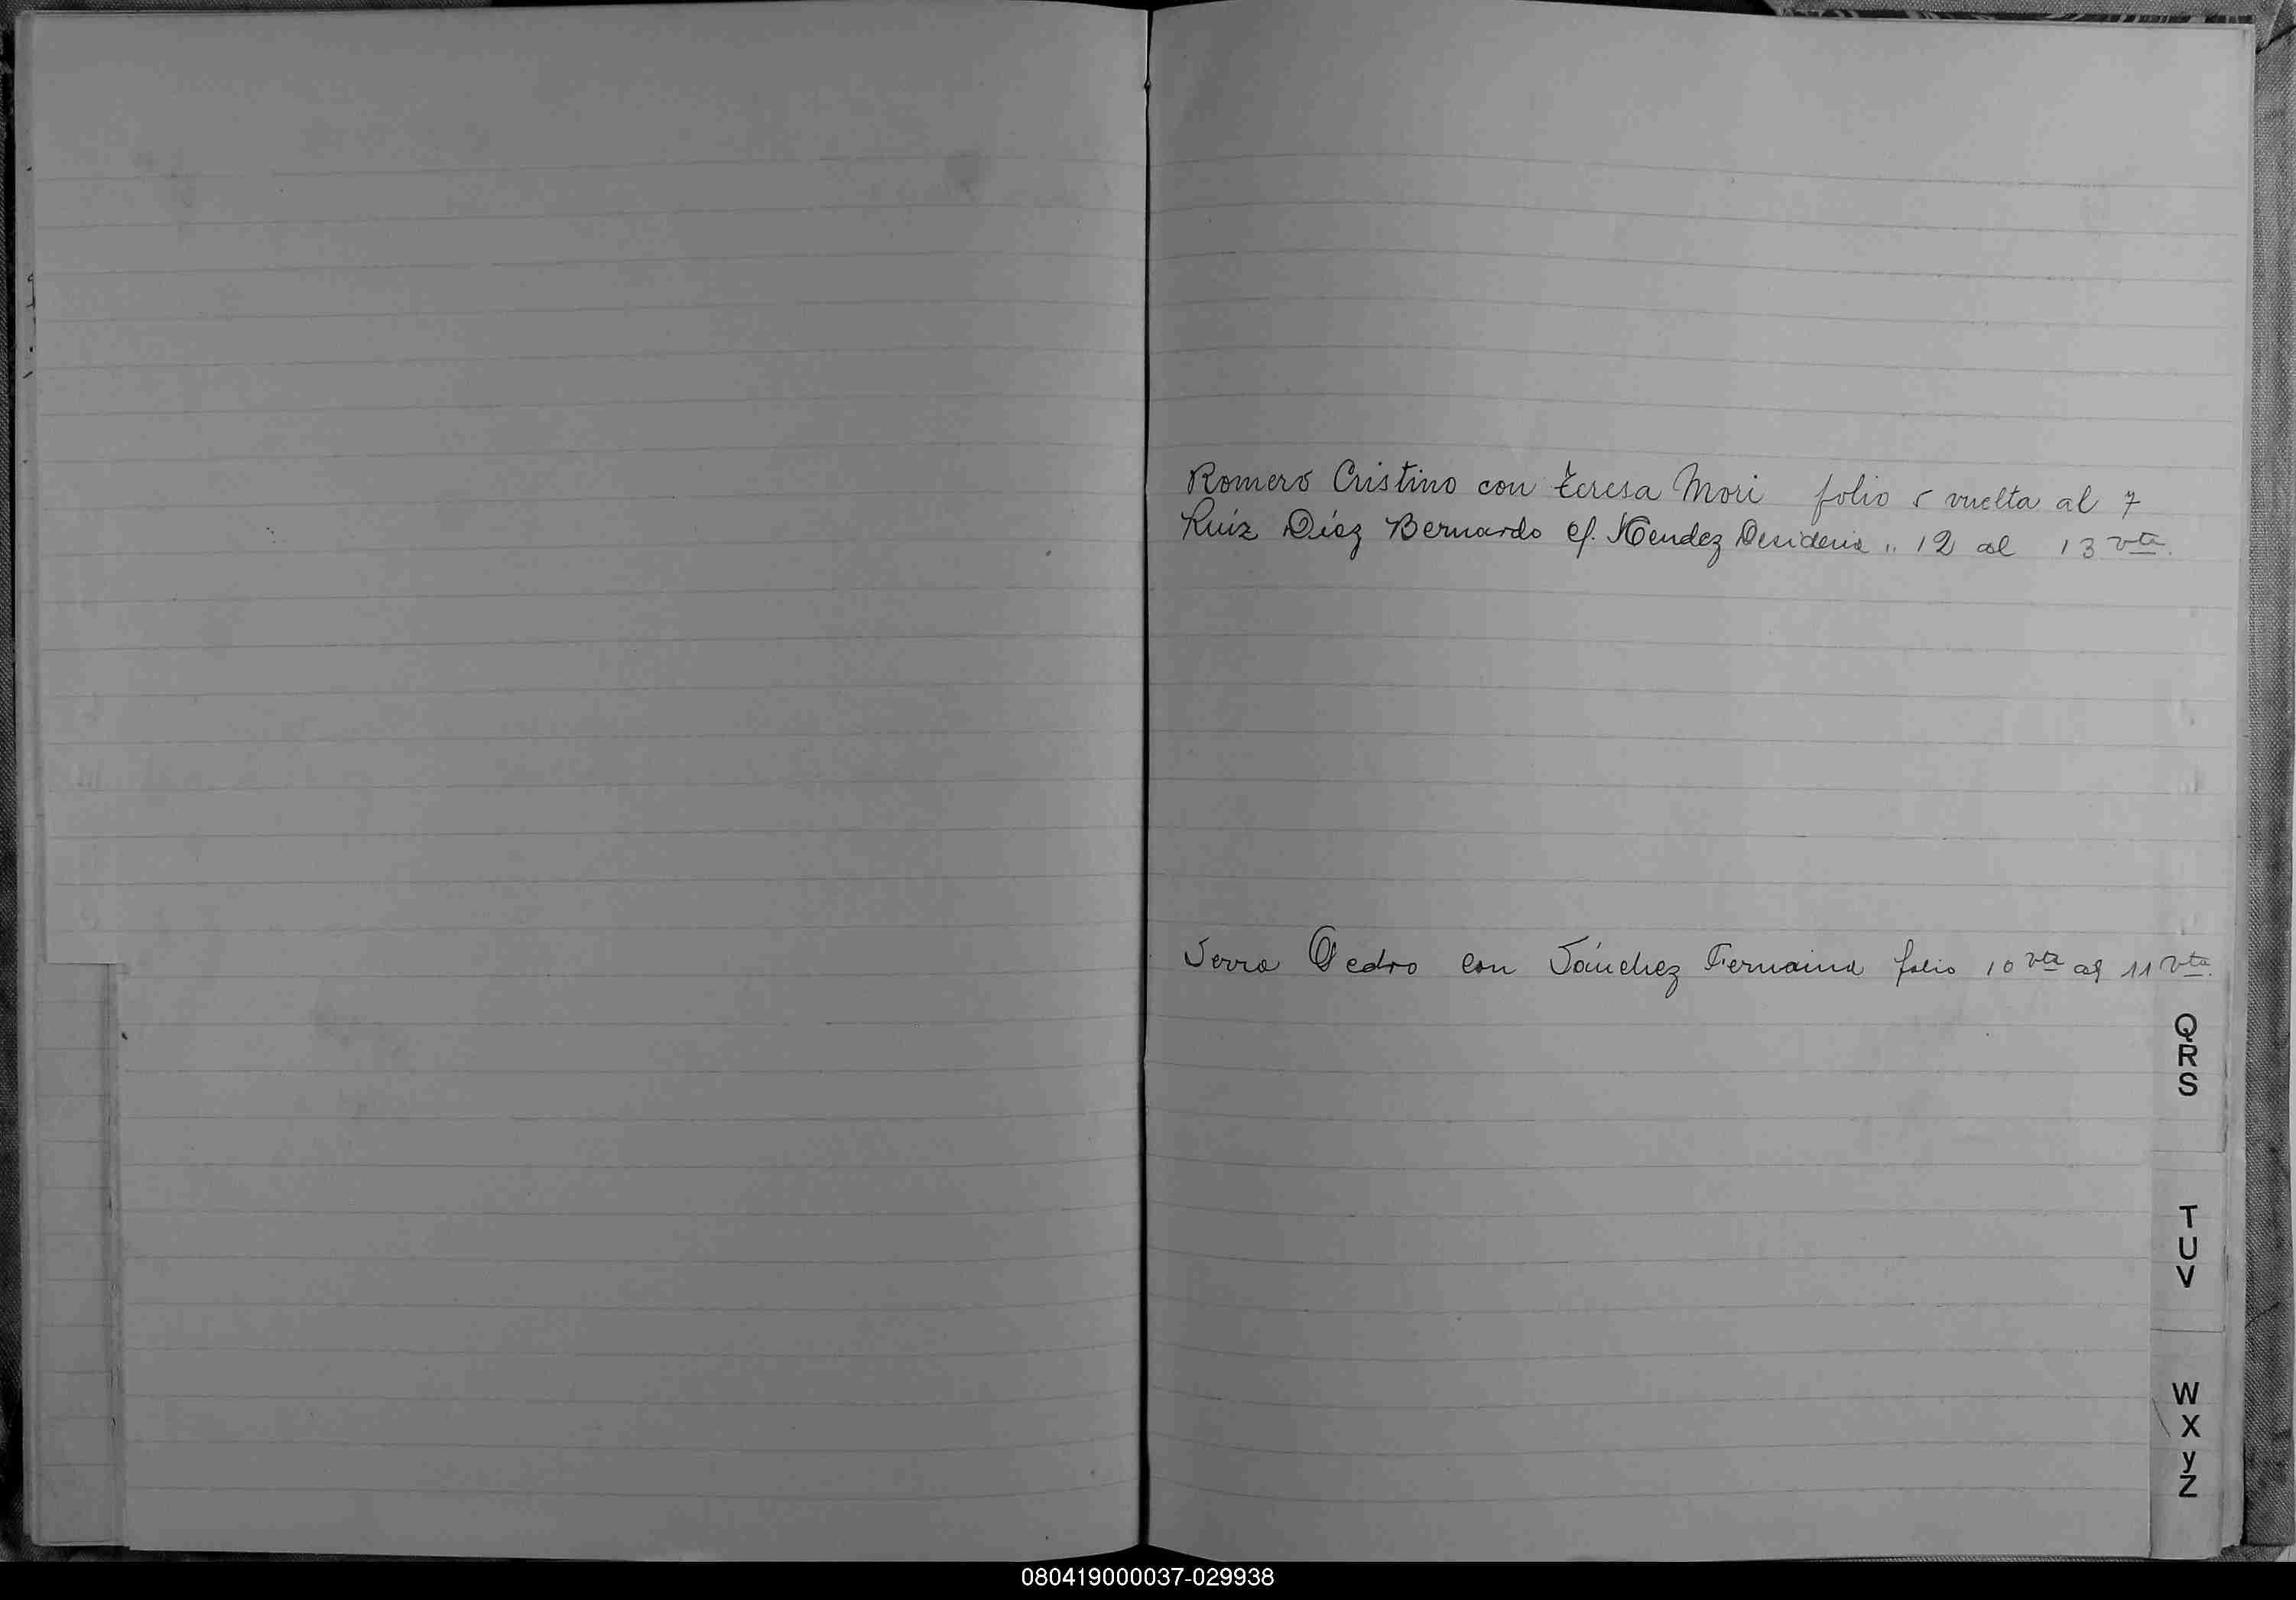 Romero Cristino con Teresa Mori folio 5 vuelta al 7
Ruíz Díaz Bernardo c/. Mendez Desideria " 12 al 13 vta.
Serra Pedro con Sánchez Fernaind folio 10 vta al 11 vta.
Q
R
S
T
U
V
W
X
y
Z
080419000037-029938